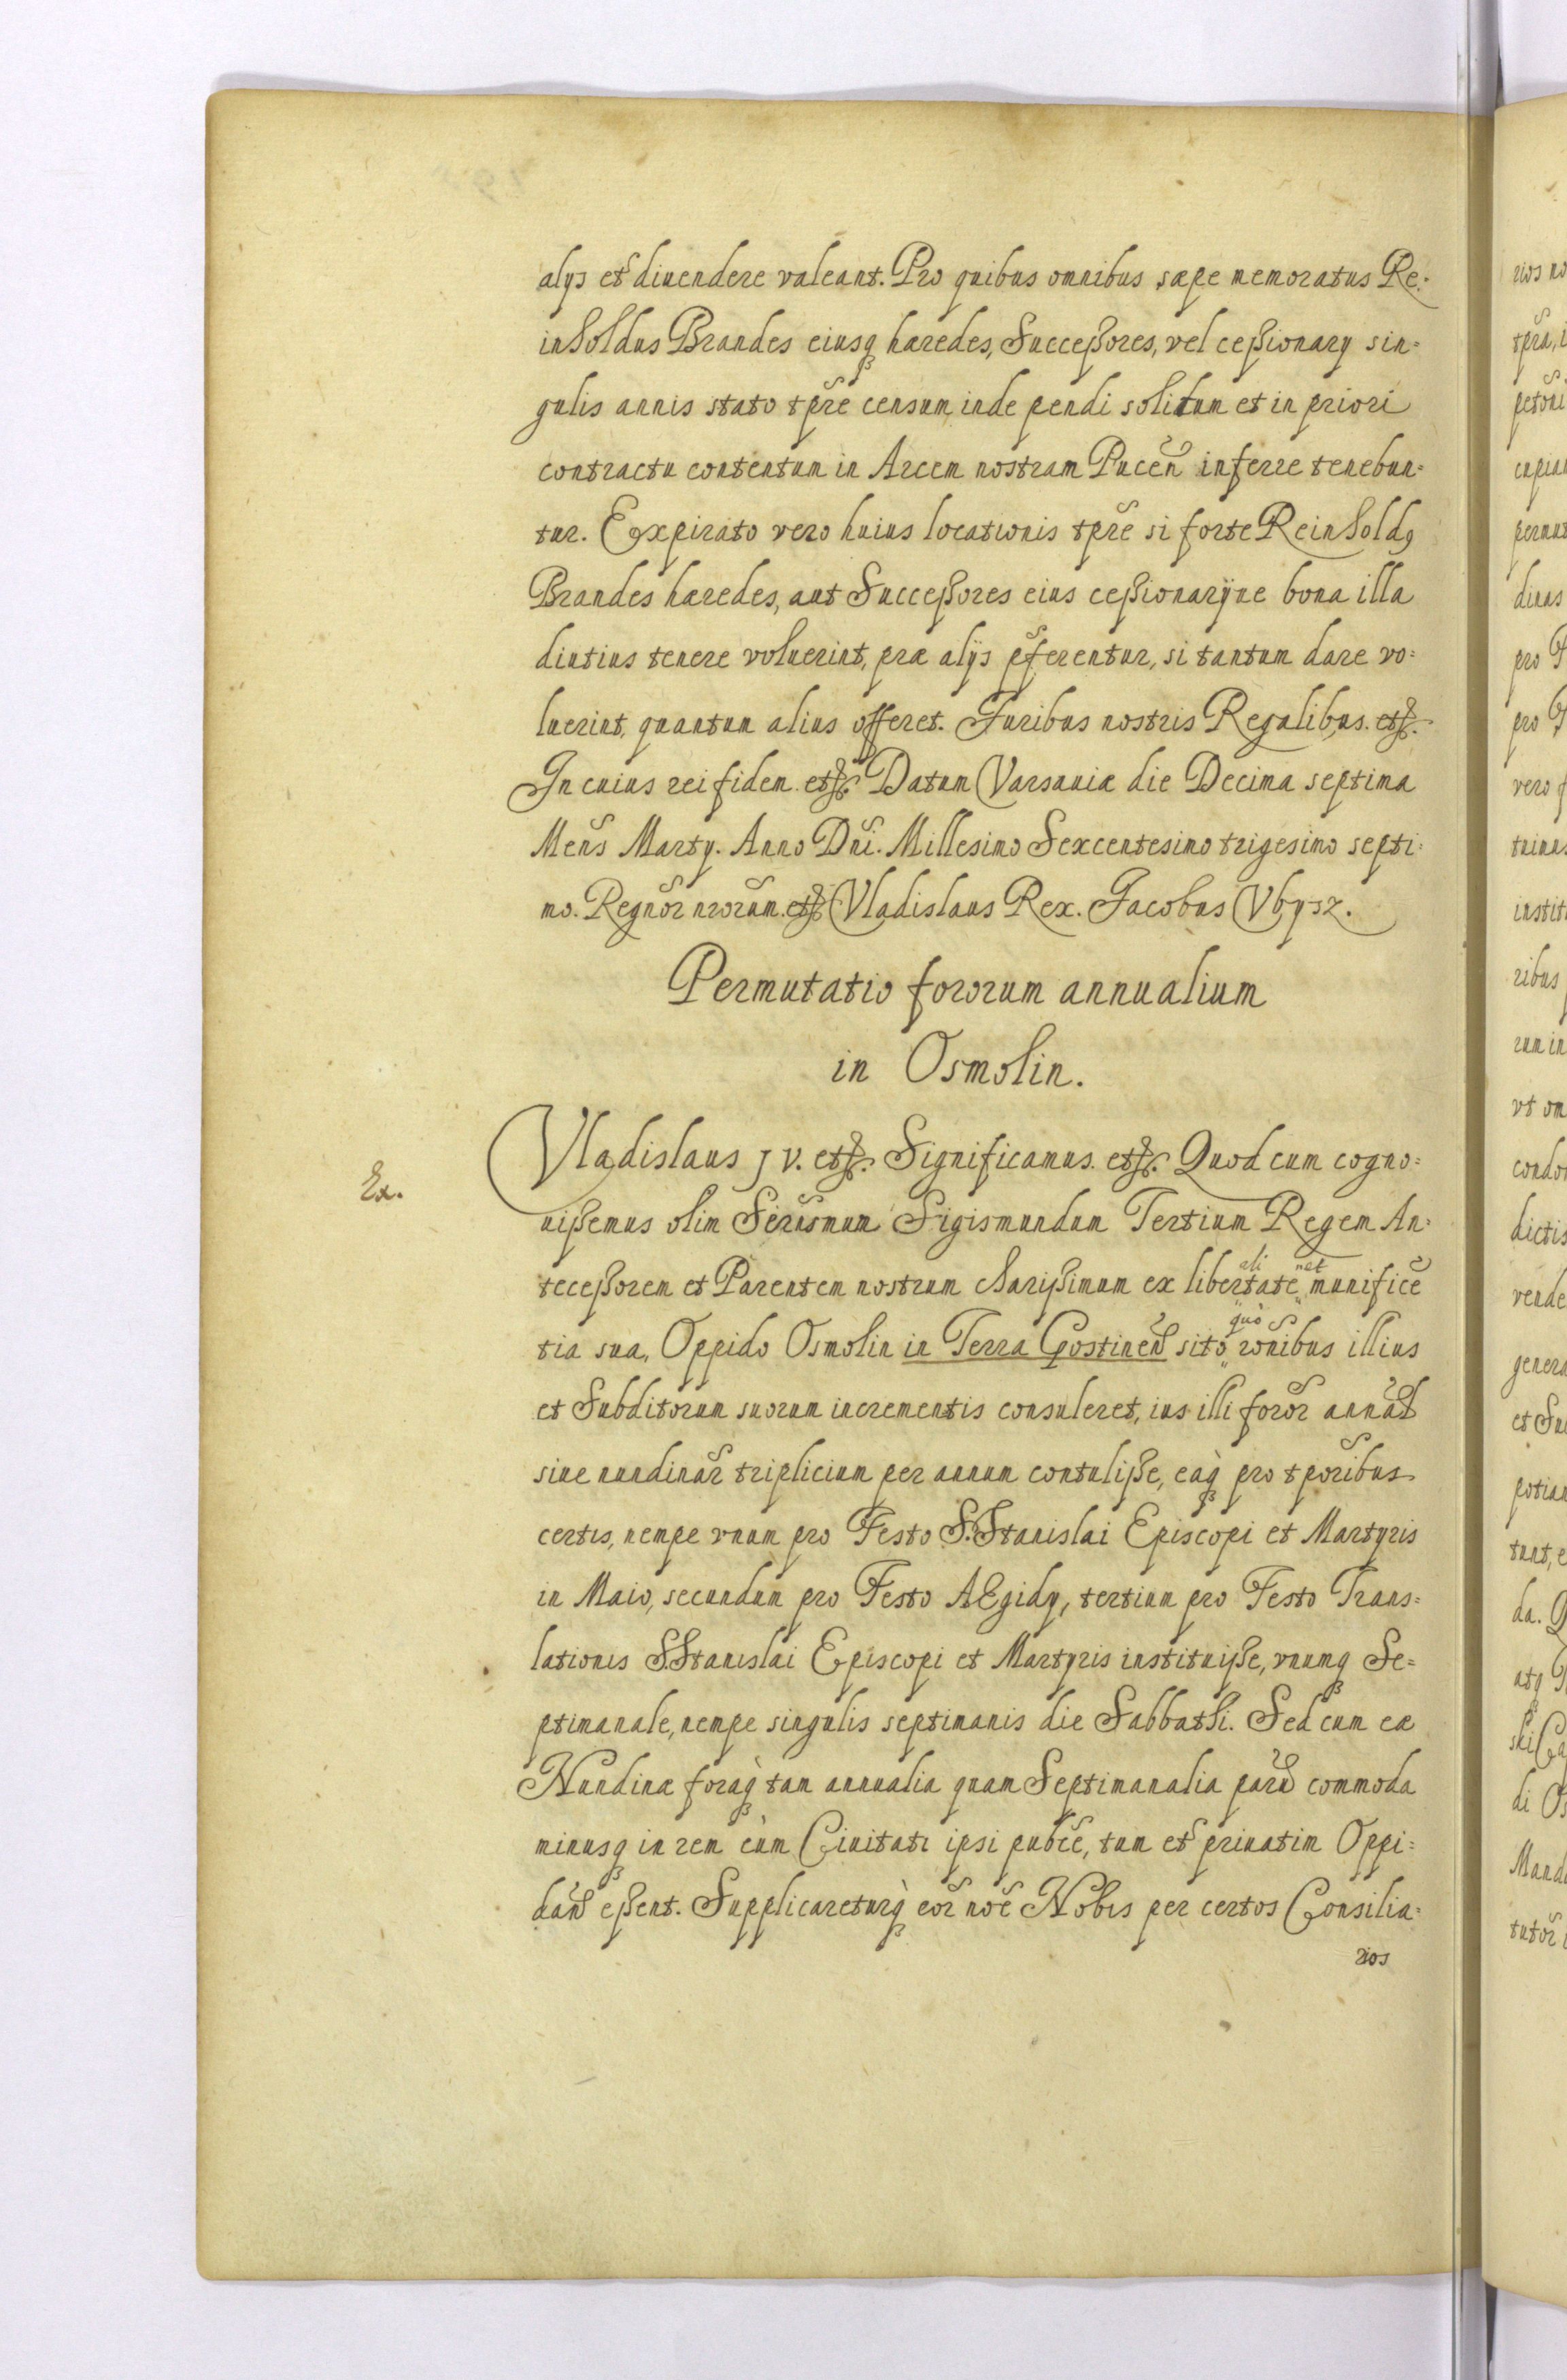 alys et diuendere valeant. Pro quibus omnibus sæpe memoratus Re:
inholdus Brandes eiusq hæredes, Successores, vel cessionary sin=
gulis annis stato tpre censum inde pendi solitum et in priori
contractu contentum in Arcem nostram Pucen inferre tenebun=
tur. Expirato vero huius locationis tpre si forte Reinhold9
Brandes hæredes, aut Successores eius cessionaryue bona illa
diutius tenere voluerint, præ alys pferentur, si tantum dare vo=
luerint, quantum alius offeret. Juribus nostris Regalibus. etc.
In cuius rei fidem. etc. Datum Varsauiæ die Decima septima
Mens Marty. Anno Dni. Millesimo Sexcentesimo trigesimo septi=
mo. Regnor nrorum. etc Vladislaus Rex. Jacobus Vbysz.
Permutatio fororum annualium
in Osmolin.
Ex.
Vladislaus JV. etc. Significamus. etc. Quod cum cogno=
uissemus olim Serusmum Sigismundum Tertium Regem An=
tecessorem et Parentem nostrum charissimum ex libertate munifice
ali net
tia sua, Oppido Osmolin in Terra Gostinen sito ronibus illius
quò
et Subditorum suorum incrementis consuleret, ius illi foror annal
siue nundinar triplicium per annum contulisse, eaq pro tporibus
certis, nempe vnum pro Festo S. Stanislai Episcopi et Martyris
in Maio, secundum pro Festo AEgidy, tertium pro Festo Trans=
lationis S. Stanislai Episcopi et Martyris instituisse, vnumq Se=
ptimanale, nempe singulis septimanis die Sabbathi. Sed cum eæ
Nundinæ foraq tam annualia quam Septimanalia paru commoda
minusq in rem cùm Ciuitati ipsi pubce, tum et priuatim Oppi=
dan essent. Supplicareturq eor noe Nobis per certos Consilia=
rios